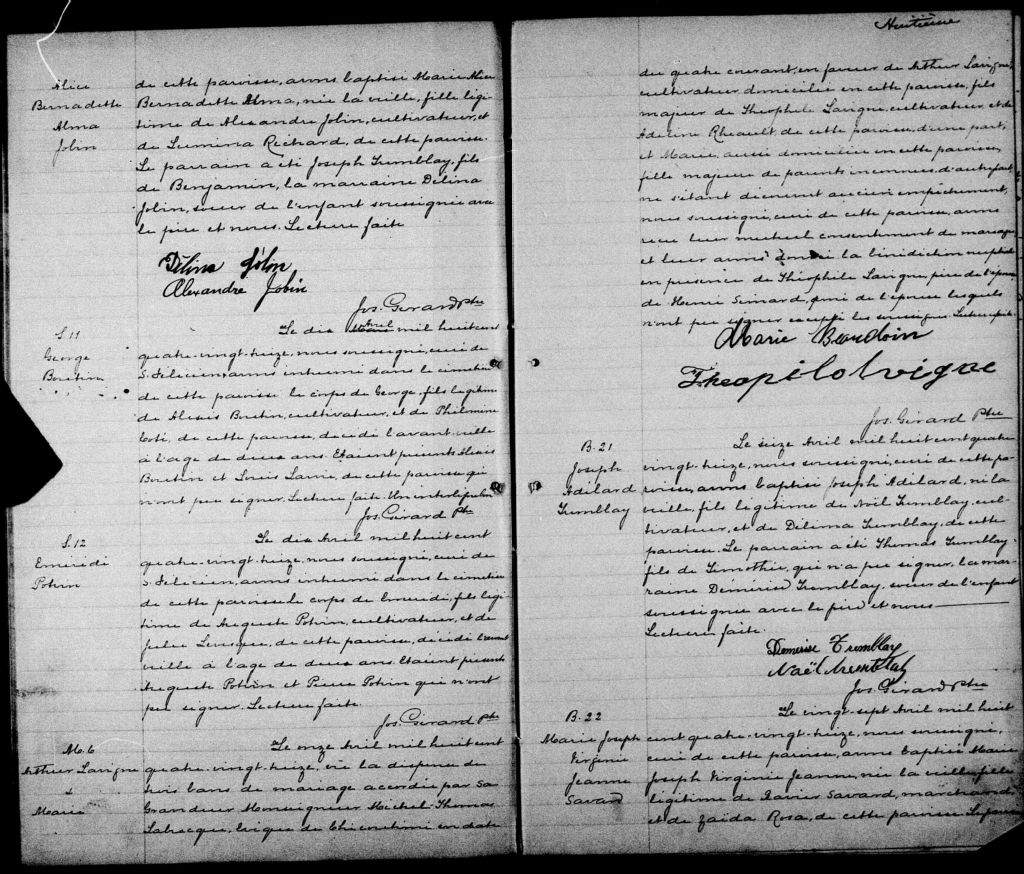 Alice
Bernadette
Alma
Jobin
de cette paroisse, avons baptisé Marie Alice
Bernadette Alma, née la veille, fille légi-
time de Alexandre Jobin, cultivateur, et
de Lumina Richard, de cette paroisse.
Le parrain a été Joseph Tremblay, fils
de Benjamin, la marraine Délina
Jobin, soeur de l'enfant soussignée avec
le père et nous. Lecture faite
Délina Jobin
Alexandre Jobin
Jos. Girard Ptre
S. 11
George
Boutin
Le dix Avril mil huit cent
quatre-vingt-treize, nous soussigné, curé de
S. Félicien, avons inhumé dans le cimetière
de cette paroisse le corps de George, fils légitime
de Alexis Boutin, cultivateur, et de Philomène
Coté, de cette paroisse, décédé l'avant-veille
à l'age de deux ans. Etaient présents Alexis
Boutin et Louis Lavoie, de cette paroisse qui
n'ont pu signer. Lecture faite. Un interligne bon
Jos. Girard Ptre
S. 12
Eméride
Potvin
Le dix Avril mil huit cent
quatre-vingt-treize, nous soussigné, curé de
S. Félicien, avons inhumé dans le cimetière
de cette paroisse le corps de Eméride, fils légi-
time de Auguste Potvin, cultivateur, et de
Julie Levesque, de cette paroisse, décédé l'avant
veille à l'age de deux ans. Etaient présents
Auguste Potvin et Pierre Potvin qui n'ont
pu signer. Lecture faite.
Jos. Girard Ptre
M. 6
Arthur Lavigne
&
Marie
Le onze Avril mil huit cent
quatre-vingt-treize, vu la dispense de
trois bans de mariage accordée par Sa
Grandeur Monseigneur Michel Thomas
Labrecque, évêque de Chicoutimi en date
Huitième
du quatre courant, en faveur de Arthur Lavigne,
cultivateur, domicilié en cette paroisse, fils
majeur de Théophile Lavigne, cultivateur, et de
Adeline Rheault, de cette paroisse, d'une part,
et Marie, aussi domiciliée en cette paroisse,
fille majeure de parents inconnus, d'autre part,
ne s'étant découvert aucun empêchement,
nous soussigné, curé de cette paroisse, avons
reçu leur mutuel consentement de mariage
et leur avons donné la bénédiction nuptiale
en présence de Théophile Lavigne, père de l'époux
de Henri Simard, ami de l'épouse lesquels
n'ont pu signer excepté les soussignés. Lecture faite.
Marie Beaudoin
Theopilolvigne
Jos. Girard Ptre
B. 21
Joseph
Adélard
Tremblay
Le seize Avril mil huit cent quatre
vingt-treize, nous soussigné, curé de cette pa-
roisse, avons baptisé Joseph Adélard, né la
veille, fils légitime de Noël Tremblay, cul-
tivateur, et de Délima Tremblay, de cette
paroisse. Le parrain a été Thomas Tremblay
fils de Timothée, qui n'a pu signer, la mar-
raine Démérise Tremblay, soeur de l'enfant
soussignée avec le père et nous
Lecture faite.
Demerise Tremblay
Naël
Jos. Girard Ptre
B. 22
Marie Joseph
Virginie
Jeanne
Savard
Le vingt-sept Avril mil huit
cent quatre-vingt-treize, nous soussigné,
curé de cette paroisse, avons baptisé Marie
Joseph Virginie Jeanne, née la veille fille
légitime de Xavier Savard, marchand
et de Zaïda Rosa, de cette paroisse